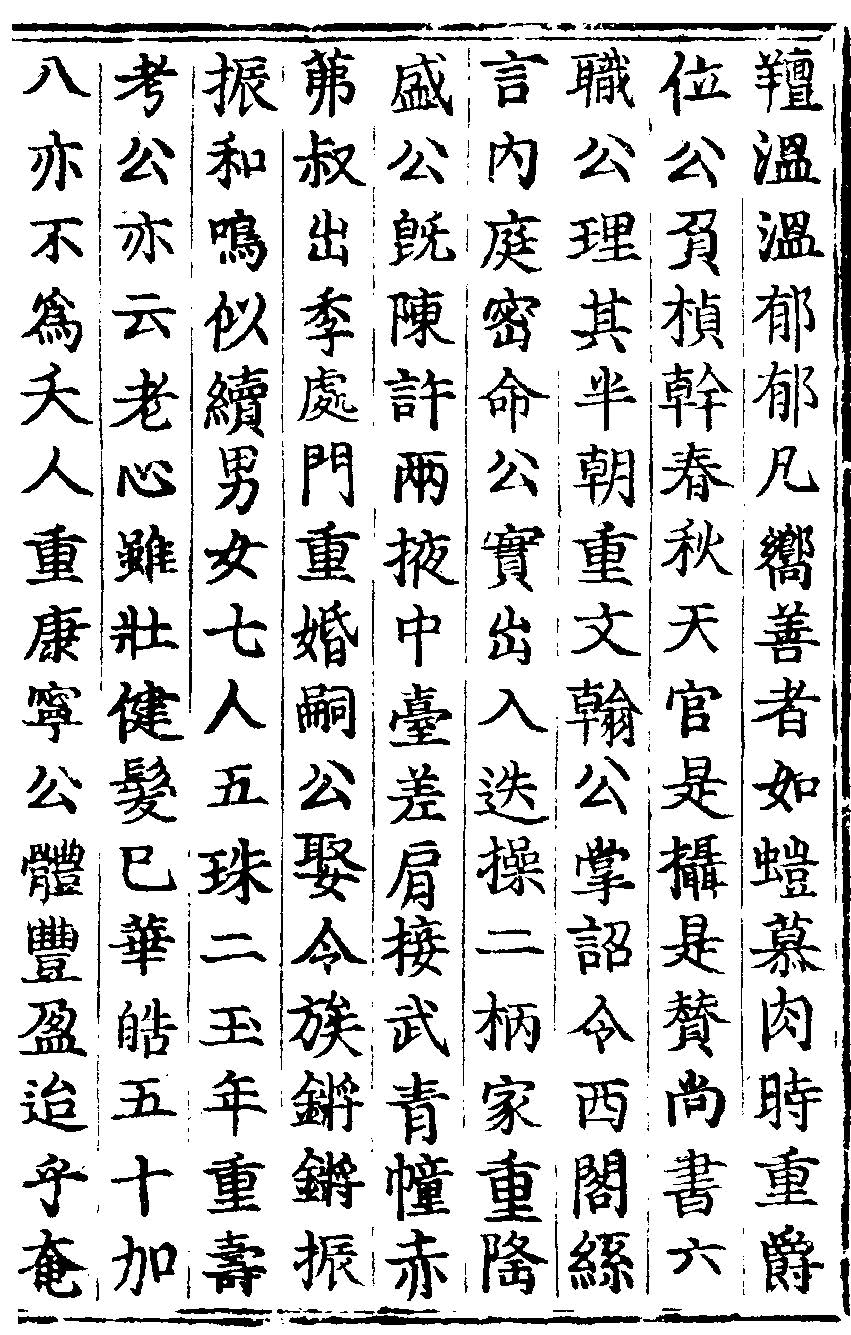 羶溫溫郁郁凡嚮善者如螘慕肉時重爵
位公負楨幹春秋天官是攝是贊尚書六
職公理其半朝重文翰公掌詔令西閣絲
言內庭密命公實出入迭操二柄家重隆
盛公旣陳許兩掖中臺差肩接武青幢赤
茀叔出季處門重婚嗣公娶令族鏘鏘振
振和鳴似續男女七人五珠二玉年重壽
考公亦云老心雖壯健髮巳華皓五十加
八亦不爲夭人重康寧公體豐盈迨乎奄